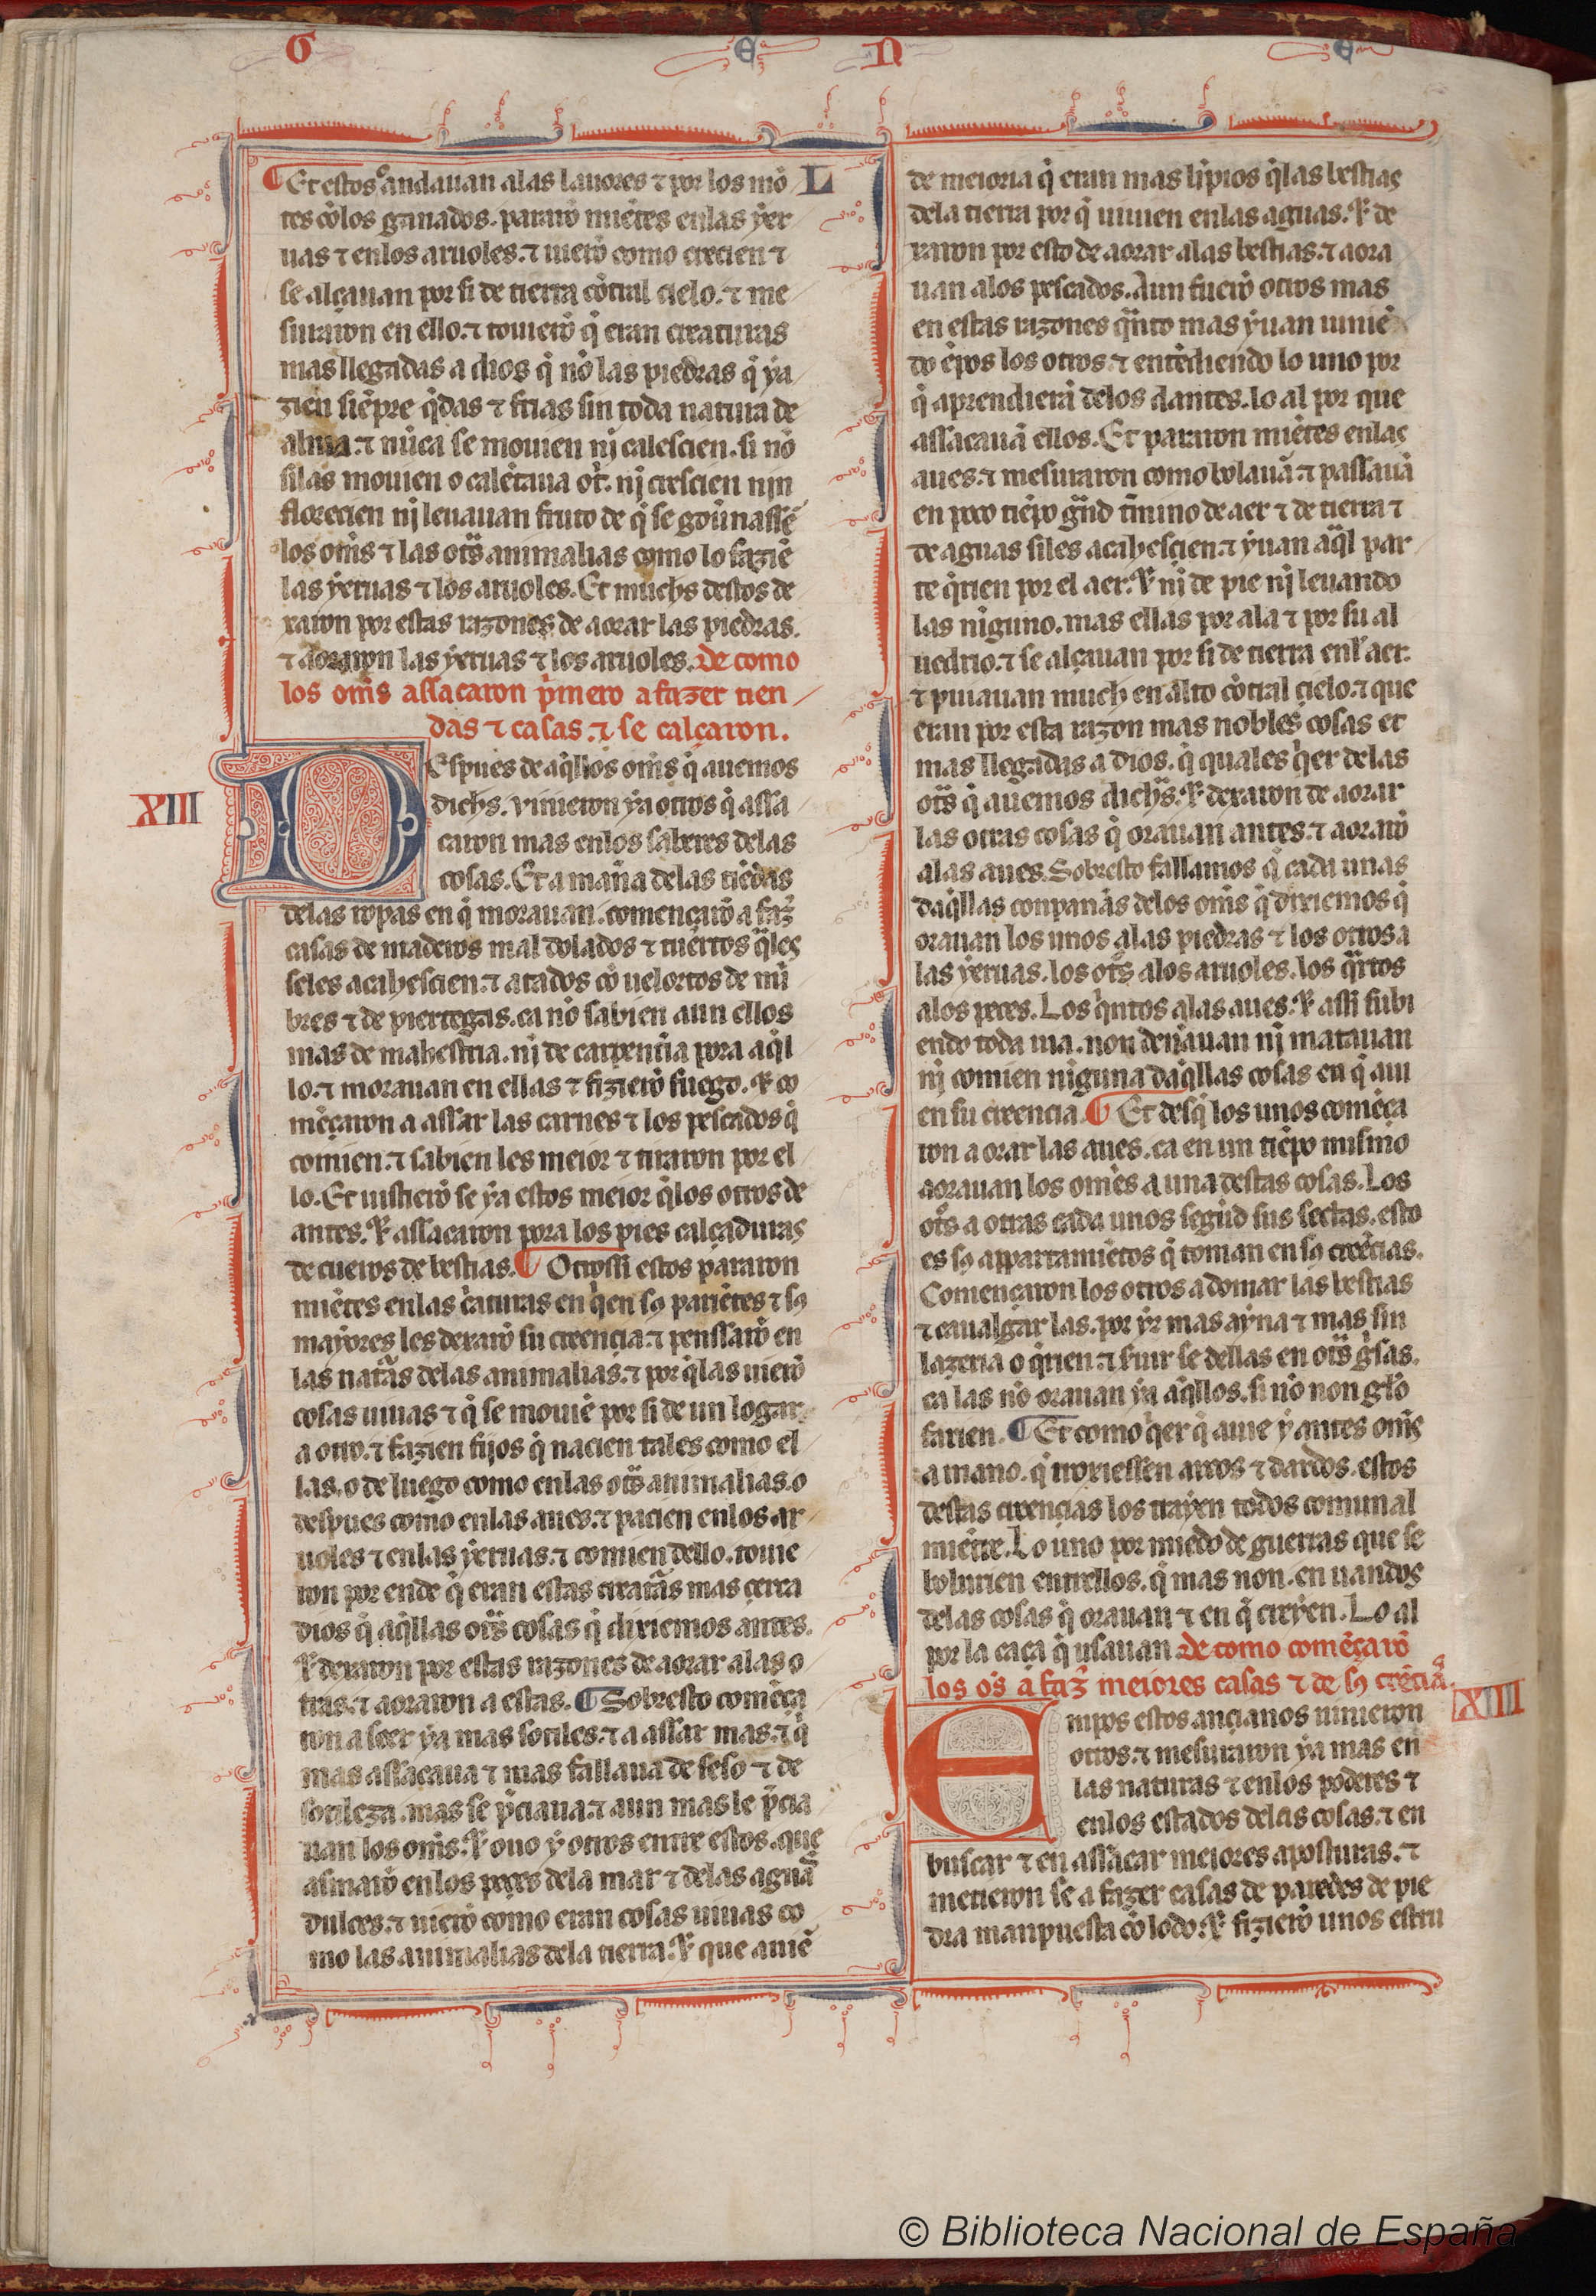 G E N E
¶ Et estos andauan alas lauores ⁊ por los mõ
tes cõ los ganados. pararõ miẽtes enlas yer
uas ⁊ enlos aruoles. ⁊ uierõ como crecien ⁊
se alçauan por si de tierra cõtral cielo. ⁊ me
suraron en ello. ⁊ touierõ q̃ eran creaturas
mas llegadas a dios q̃ nõ las piedras q̃ ya
zien siẽpre q̃das ⁊ frias sin toda natura de
alma. ⁊ nũca se mouien nj calescien. si nõ
silas mouien o calẽtaua otr̃. nj crescien njn
florecien nj leuauan fruto de q̃ se gou̾nassẽ
los om̃s ⁊ las otr̃s animalias como lo faziẽ
las yeruas ⁊ los aruoles. Et muchs destos de
xaron por estas razones de aorar las piedras.
⁊ aoraron las yeruas ⁊ los aruoles. de como
los om̃s assacaron p̃mero a fazer tien
das ⁊ casas. ⁊ se calçaron.
XIII
Espues de aq̃llos om̃s q̃ auemos
dichs. vinieron ya otros q̃ assa
caron mas enlos saberes delas
cosas. Et a mañã delas tiẽdas
delas ropas en q̃ morauan. començarõ a faz̃
casas de maderos mal dolados ⁊ tuertos q̃les
seles acahescien. ⁊ atados cõ uelortos de mĩ
bres ⁊ de piertegas. ca nõ sabien aun ellos
mas de mahestria. nj de carpenteria pora aq̃l
lo. ⁊ morauan en ellas ⁊ fizierõ fuego. ⁊ co
mẽçaron a assar las carnes ⁊ los pescados q̃
comien. ⁊ sabien les meior ⁊ tiraron por el
lo. Et uistierõ se ya estos meior q̃los otros de
antes. ⁊ assacaron pora los pies calçaduras
de cueros de bestias. ¶ Otrossi estos pararon
miẽtes enlas c̃aturas en q̃en sꝯ pariẽtes ⁊ sꝯ
mayores les dexarõ su creencia. ⁊ penssarõ en
las nat̃as delas animalias. ⁊ por q̃las uierõ
cosas uiuas ⁊ q̃ se mouiẽ por si de un logar
a otro. ⁊ fazien fijos q̃ nacien tales como el
las. o de luego como enlas otr̃s animalias. o
despues como enlas aues. ⁊ pacien enlos ar
uoles ⁊ enlas yeruas. ⁊ comien dello. touie
ron por ende q̃ eran estas creat̃as mas cerca
dios q̃ aq̃llas otr̃s cosas q̃ dixiemos antes.
⁊ dexaron por estas razones de aorar alas o
tras. ⁊ aoraron a estas. ¶ Sobresto comẽça
ron a seer ya mas sotiles. ⁊ a assar mas. ⁊ q̃
mas assacaua ⁊ mas fallaua de seso ⁊ de
sotileza. mas se p̃ciaua. ⁊ aun mas le p̃cia
uan los om̃s. ⁊ ouo y otros entre estos. que
asmarõ enlos peçes dela mar ⁊ delas aguas
dulces. ⁊ uierõ como eran cosas uiuas co
mo las animalias dela tierra. ⁊ que auiẽ
L
de meioria q̃ eran mas lĩpios q̃las bestias
dela tierra por q̃ uiuien enlas aguas. ⁊ de
xaron por esto de aorar alas bestias. ⁊ aora
uan alos pescados. Aun fuerõ otros mas
en estas razones q̃nto mas yuan uiniẽ
do ẽpos los otros. ⁊ entẽdiendo lo uno por
q̃ aprendierã delos dantes. lo al por que
assacauã ellos. Et pararon miẽtes enlas
aues. ⁊ mesuraron como bolauã. ⁊ passauã
en poco tiẽpo g̃nd t̃mino de aer ⁊ de tierra ⁊
de aguas siles acahescien. ⁊ yuan a q̃l par
te q̃rien por el aer. ⁊ nj de pie nj leuando
las niguno. mas ellas por ala ⁊ por su al
uedrio. ⁊ se alçauan por si de tierra enl aer.
⁊ puiauan much en alto cõtral çielo. ⁊ que
eran por esta razon mas nobles cosas et
mas llegadas a dios. q̃ quales q̃er delas
otr̃s q̃ auemos dichs̃. ⁊ dexaron de aorar
las otras cosas q̃ orauan antes. ⁊ aorarõ
alas aues. Sobresto fallamos q̃ cada unas
daq̃llas conpanãs delos om̃s q̃ dixiemos q̃
orauan los unos alas piedras ⁊ los otros a
las yeruas. los otr̃s alos aruoles. los q̃rtos
alos peces. Los q̃ntos alas aues. ⁊ assi subi
endo toda uia. non denãuan nj matauan
nj comien niguna daq̃llas cosas en q̃ aui
en su creencia. ¶ Et desq̃ los unos comẽça
ron a orar las aues. ca en un tiẽpo mismo
aorauan los omẽs a una destas cosas. Los
otr̃s a otras cada unos segũd sus sectas. esto
es sꝯ appartamiẽtos q̃ toman en sꝯ creẽcias.
Començaron los otros a domar las bestias
⁊ caualgar las. por yr mas ayna ⁊ mas sin
lazeria o q̃rien. ⁊ siruir se dellas en otr̃s g̃sas.
ca las nõ orauan ya aq̃llos. si nõ non gło
farien. ¶ Et como q̃er q̃ auie y antes om̃s
a mano. q̃ troxiessen arcos ⁊ dardos. estos
destas creencias los trayen todos comunal
miẽtre. Lo uno por miedo de guerras que se
boluien entrellos. q̃ mas non. en uandos
delas cosas q̃ orauan ⁊ en q̃ creyen. Lo al
por la caça q̃ usauan de como comẽçarõ
los os̃ a faz̃ meiores casas ⁊ de sꝯ creẽcias
XIIII
Empos estos ancianos uinieron
otros. ⁊ mesuraron ya mas en
las naturas ⁊ enlos poderes ⁊
enlos estados delas cosas. ⁊ en
buscar ⁊ en assacar meiores aposturas. ⁊
metieron se a fazer casas de paredes de pie
dra manpuesta cõ lodo. ⁊ fizierõ unos estru
© Biblioteca Nacional de España